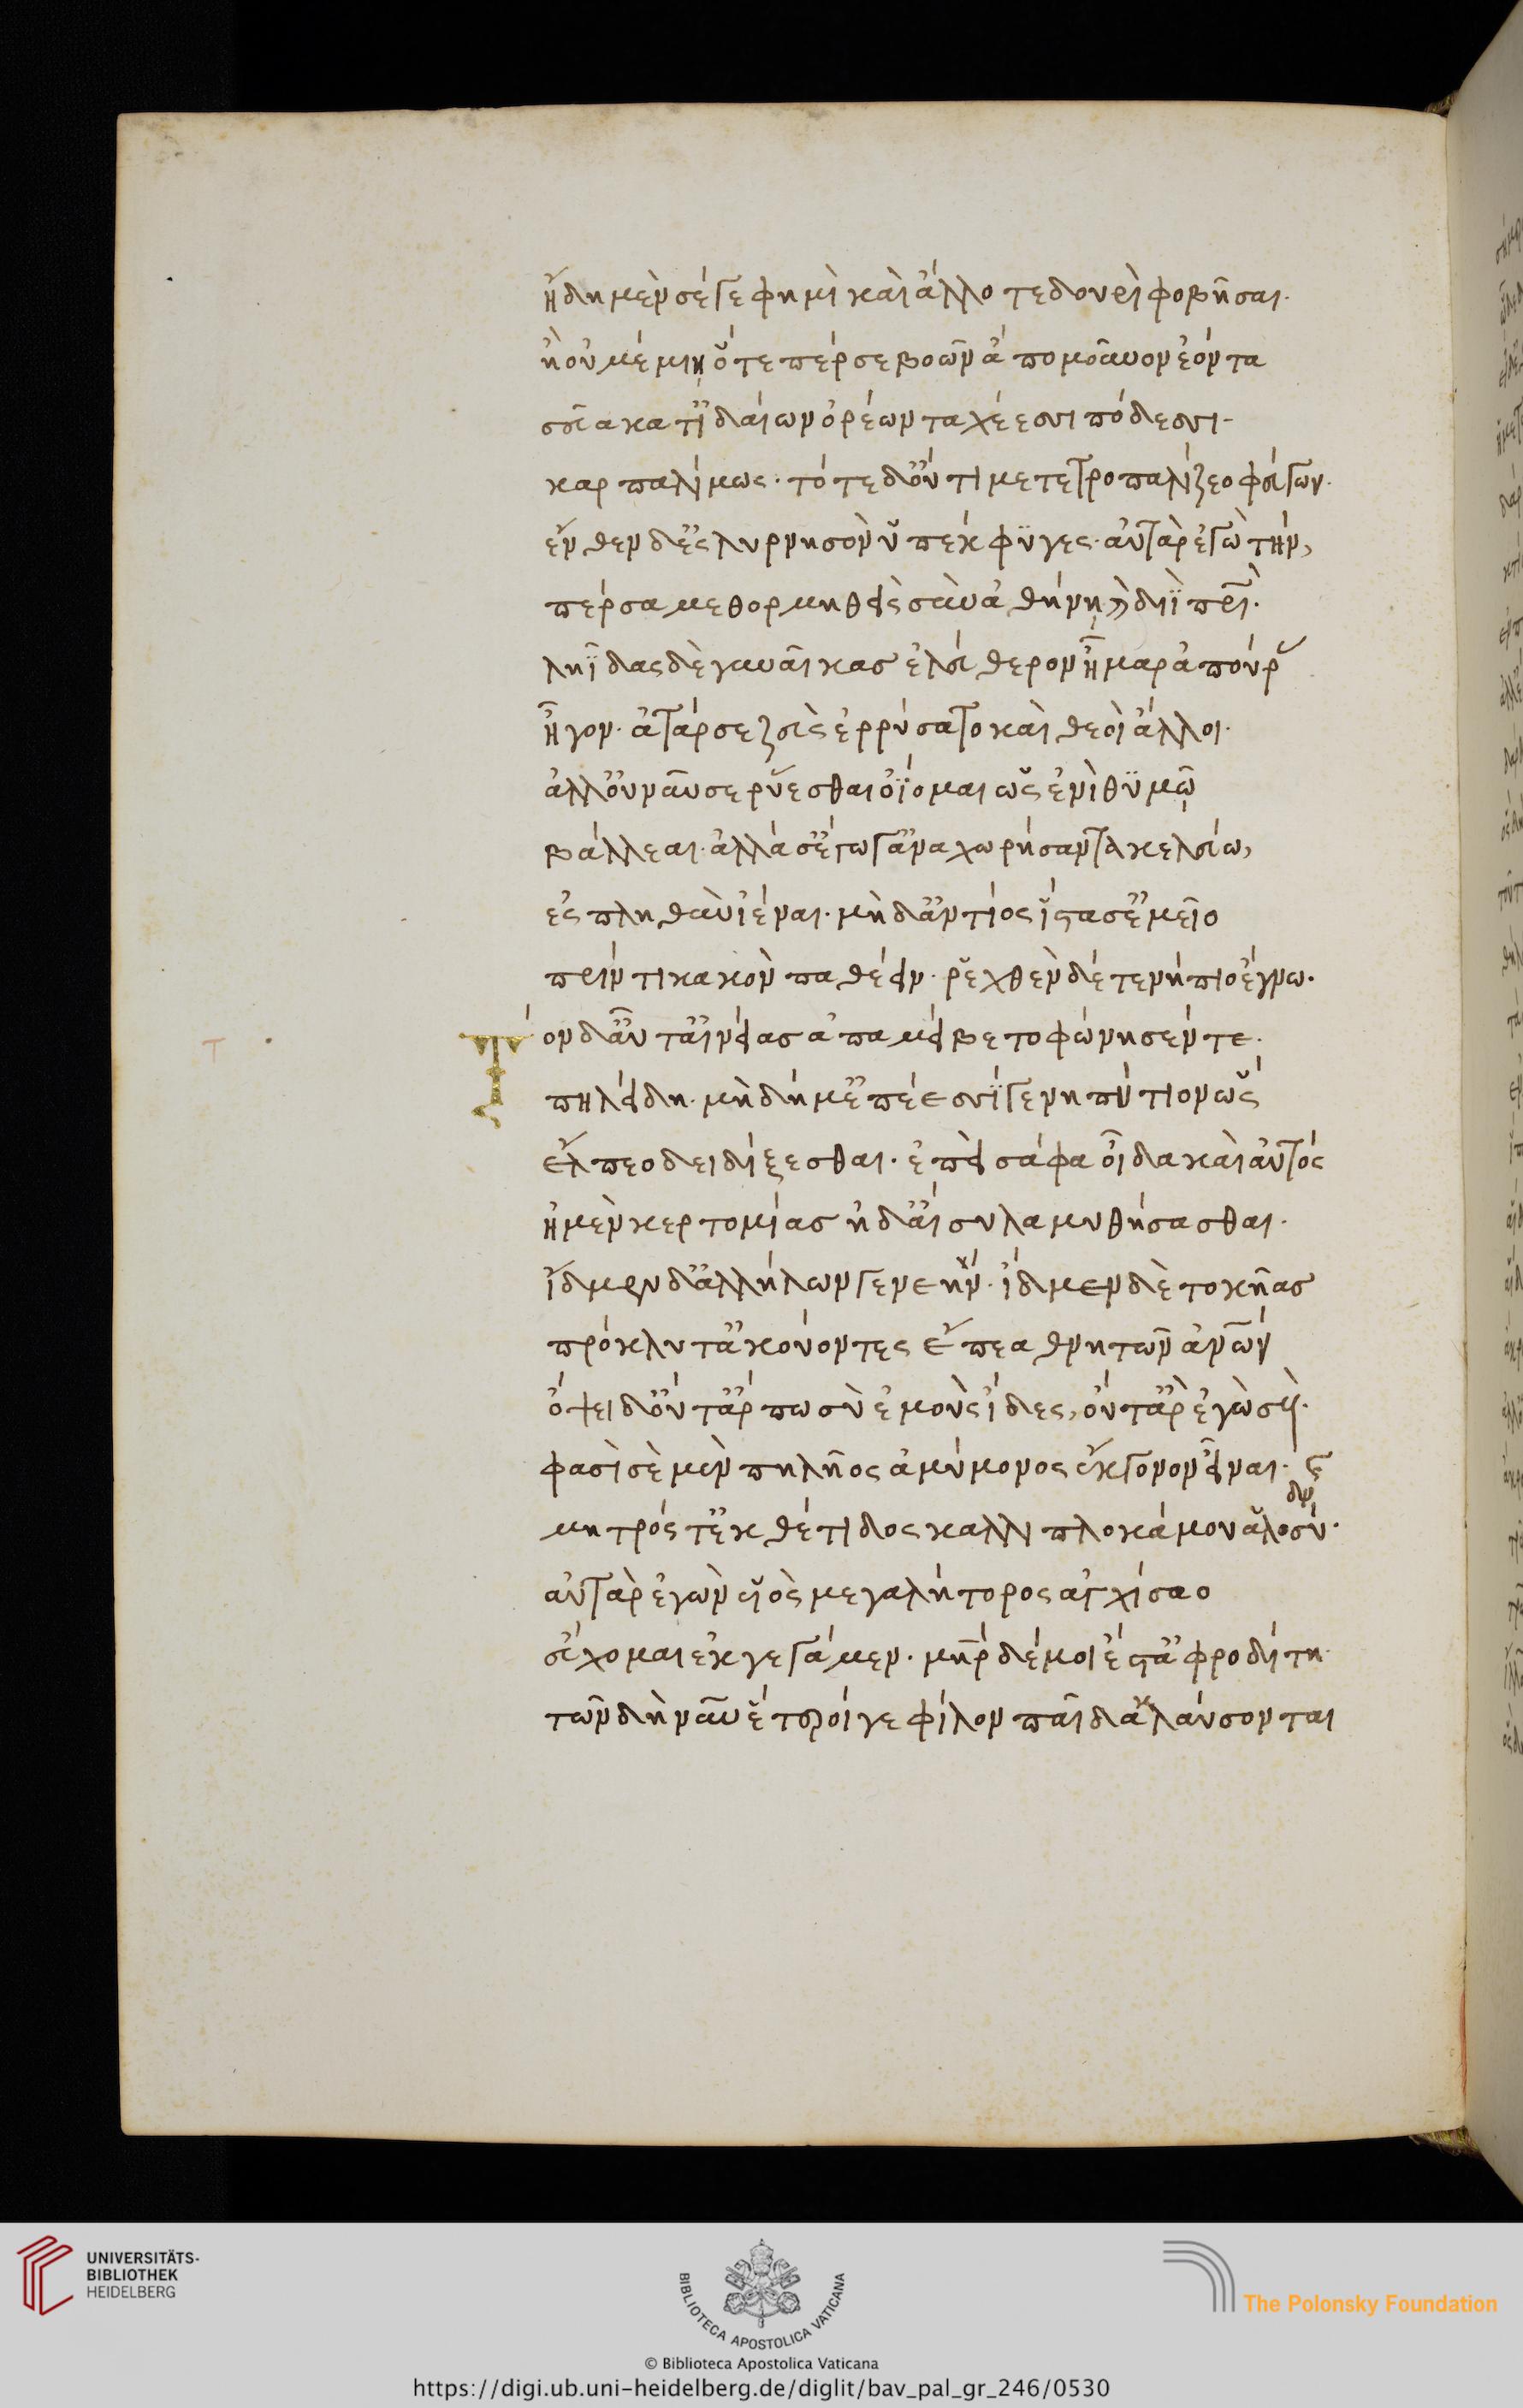 ἤδη μὲν σέ γέ φημι καὶ ἄλλοτε δουρὶ φοβῆσαι·
ἢ οὐ μέμνῃ ὅτε πέρ σε βοῶν ἄπο μοῦνον ἐόντα
σεῦα κατ' ἰδαίων ὀρέων ταχέεσσι πόδεσσι·
καρπαλίμως· τότε δ' οὔ τι μετετροπαλίζεο φεύγων·
ἔνθεν δ' ἐς λυρνησὸν ὑπέκφυγες· αὐτὰρ ἐγὼ τὴν,
πέρσα μεθορμηθεὶς σὺν ἀθήνῃ καὶ διῒ πρι·
ληϊάδας δὲ γυναῖκας ἐλεύθερον ἦμαρ ἀπούρας
ἦγον· ἀτάρ σε ζεὺς ἐρρύσατο καὶ θεοὶ ἄλλοι·
ἀλλ' οὐ νῦν σε ῥύεσθαι ὀΐομαι ὡς ἐνὶ θυμῷ
βάλλεαι· ἀλλά σ' ἔγωγ' ἀναχωρήσαντα κελεύω,
ἐς πληθὺν ἰέναι· μὴ δ' ἀντίος ἵστασ' ἐμεῖο
πρίν τι κακὸν παθέειν· ῥεχθὲν δέ τε νήπιος ἔγνω·
Τὸν δ' αὖτ' αἰνείας ἀπαμείβετο φώνησέν τε·
πηλείδη· μὴ δή μ' ἐπέεσσί γε νηπύτιον ὣς
ἔλπεο δειδίξεσθαι· ἐπεὶ σάφα οἶδα καὶ αὐτὸς
ἠμὲν κερτομίας ἠδ' αἴσυλα μυθήσασθαι·
ἴδμεν δ' ἀλλήλων γενεήν· ἴδμεν δὲ τοκῆας
πρόκλυτ' ἀκούοντες ἔπεα θνητῶν ἀνθρώπων
ὄψει δ' οὔτ' ἄρ πω σὺ ἐμοὺς ἴδες, οὔτ' ἄρ' ἐγὼ σούς·
φασὶ σὲ μὲν πηλῆος ἀμύμονος ἔκγονον εἶναι·
μητρός τ' ἐκ θέτιδος καλλιπλοκάμου ἁλοσύδνης·
αὐτὰρ ἐγὼν υἱὸς μεγαλήτορος ἀγχίσαο
εὔχομαι ἐκγεγάμεν· μηρ δέ μοι ἐστ' ἀφροδίτη·
τῶν δὴ νῦν ἕτεροί γε φίλον παῖδα κλαύσονται
T
UNIVERSITÄTS-
BIBLIOTHEK
HEIDELBERG
BIBLIOTECA APOSTOLICA VATICANA
The Polonsky Foundation
© Biblioteca Apostolica Vaticana
https://digi.ub.uni-heidelberg.de/diglit/bav_pal_gr_246/0530